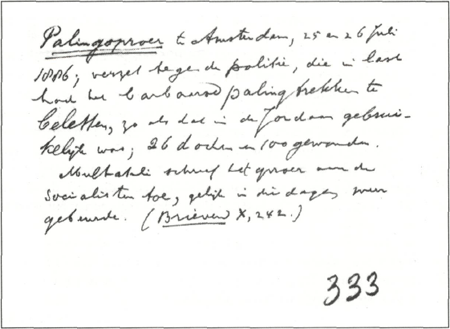 Palingoproer te Amsterdam, 25 en 26 Juli
1886; verzet tegen de politie, die in last
had het barbaarse palingtrekken te
beletten, zo als dat in de Jordaan gebrui-
kelijk was; 26 doden en 100 gewonden.
Multatuli schreef het oproer aan de
socialisten toe, gelijk in die dagen meer
gebeurde. (Brieven X, 242.)
333